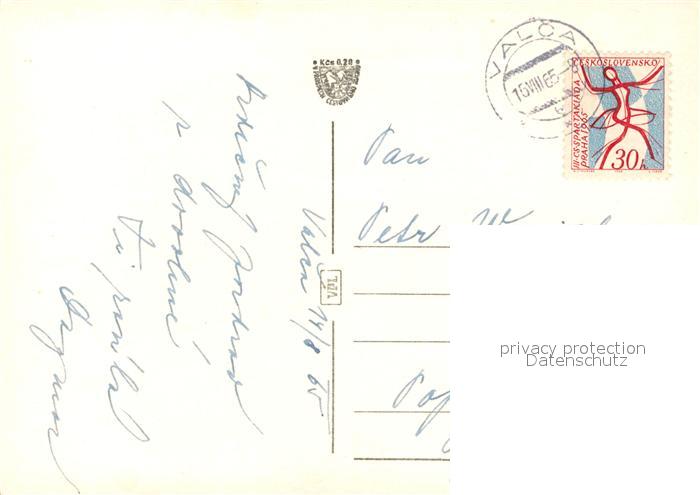 Kčs 0.20
VALČA
15.VIII.65
ČESKOSLOVENSKO
III·CS·SPARTAKIÁDA
PRAHA 1965
30h
Srdečný pozdrav
z dovolené
Ti posílá
Dagmar
Valča 14/8 65
Pan
Petr
privacy protection
Datenschutz